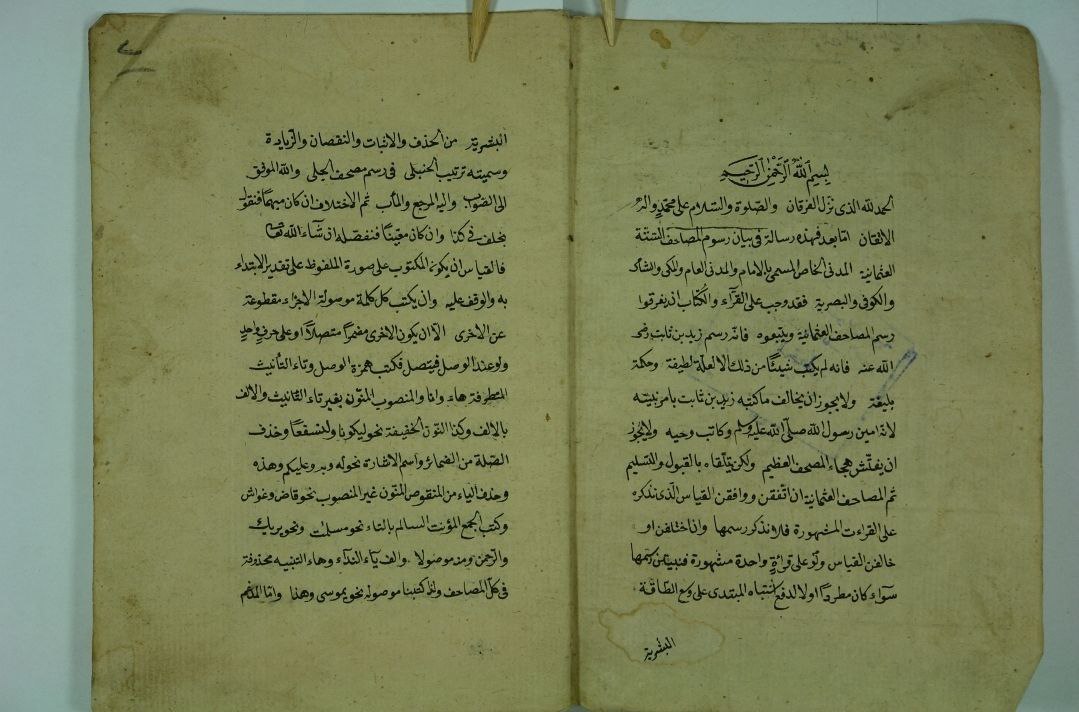 بسم الله الرحمن الرحيم
الحمد لله الذى نزل الفرقان والصلوة والسلام على محمد واله
الاتقان اما بعد فهذه رسالة فى بيان رسوم المصاحف الستة
العثمانية المدنى الخاص المسمى بالامام والمدنى العام والمكى والشامى
والكوفى والبصرية فقد وجب على القرآء والكتاب ان يعرفوا
رسم المصاحف العثمانية ويتبعوه فانه رسم زيد بن ثابت رضى
الله عنه فانه لم يكتب شيئا من ذلك الا لعلة لطيفة وحكمة
بليغة ولا يجوز ان يخالف ما كتبه زيد بن ثابت بامر نبيه
لانه امين رسول الله صلى الله عليه وسلم وكاتب وحيه ولا يجوز
ان يفتش هجاء المصحف العظيم ولكن يتلقاه بالقبول والتسليم
ثم المصاحف العثمانية ان اتفقن ووافقن القياس الذى نذكره
على القراءت المشهورة فلا نذكر رسمها وان اختلفن او
خالفن القياس ولو على قرائة واحدة مشهورة فنبين رسمها
سوآء كان مطردا اولا لدفع اشتباه المبتدى على وسع الطاقة
البشرية
البشرية من الحذف والاثبات والنقصان والزيادة
وسميته ترتيب الحنبلى فى رسم مصحف الجلى والله الموفق
الى الصواب واليه المرجع والمأب ثم الاختلاف ان كان مبهما فنقول
بخلف فى كذا وان كان معينا فنفصله ان شآء الله تعالى
فالقياس ان يكون المكتوب على صورة الملفوظ على تقدير الابتداء
به والوقف عليه وان يكتب كل كلمة موصولة الاجزاء مقطوعة
عن الاخرى الا ان يكون الاخرى مضمرا متصلا او على حرف واحد
ولو عند الوصل فيتصل فكتب همزة الوصل وتاء التأنيث
المتطرفة هاء وانا والمنصوب المنون بغير تاء التانيث والالف
بالالف وكذا النون الخفيفة نحو ليكونا ولنسفعا وحذف
الصلة من الضمائر واسم الاشارة نحو له وبه وعليكم وهذه
وحذف الياء من المنقوص المنون غير المنصوب نحو قاض وغواش
وكتب الجمع المؤنث السالم بالتاء نحو مسلمات ونحو بربك
والرحمن ومن موصولا والف يآء الندآء وهاء التنبيه محذوفة
فى كل المصاحف ولذا كتبنا موصوله نحو يموسى وهذا واما المدغم